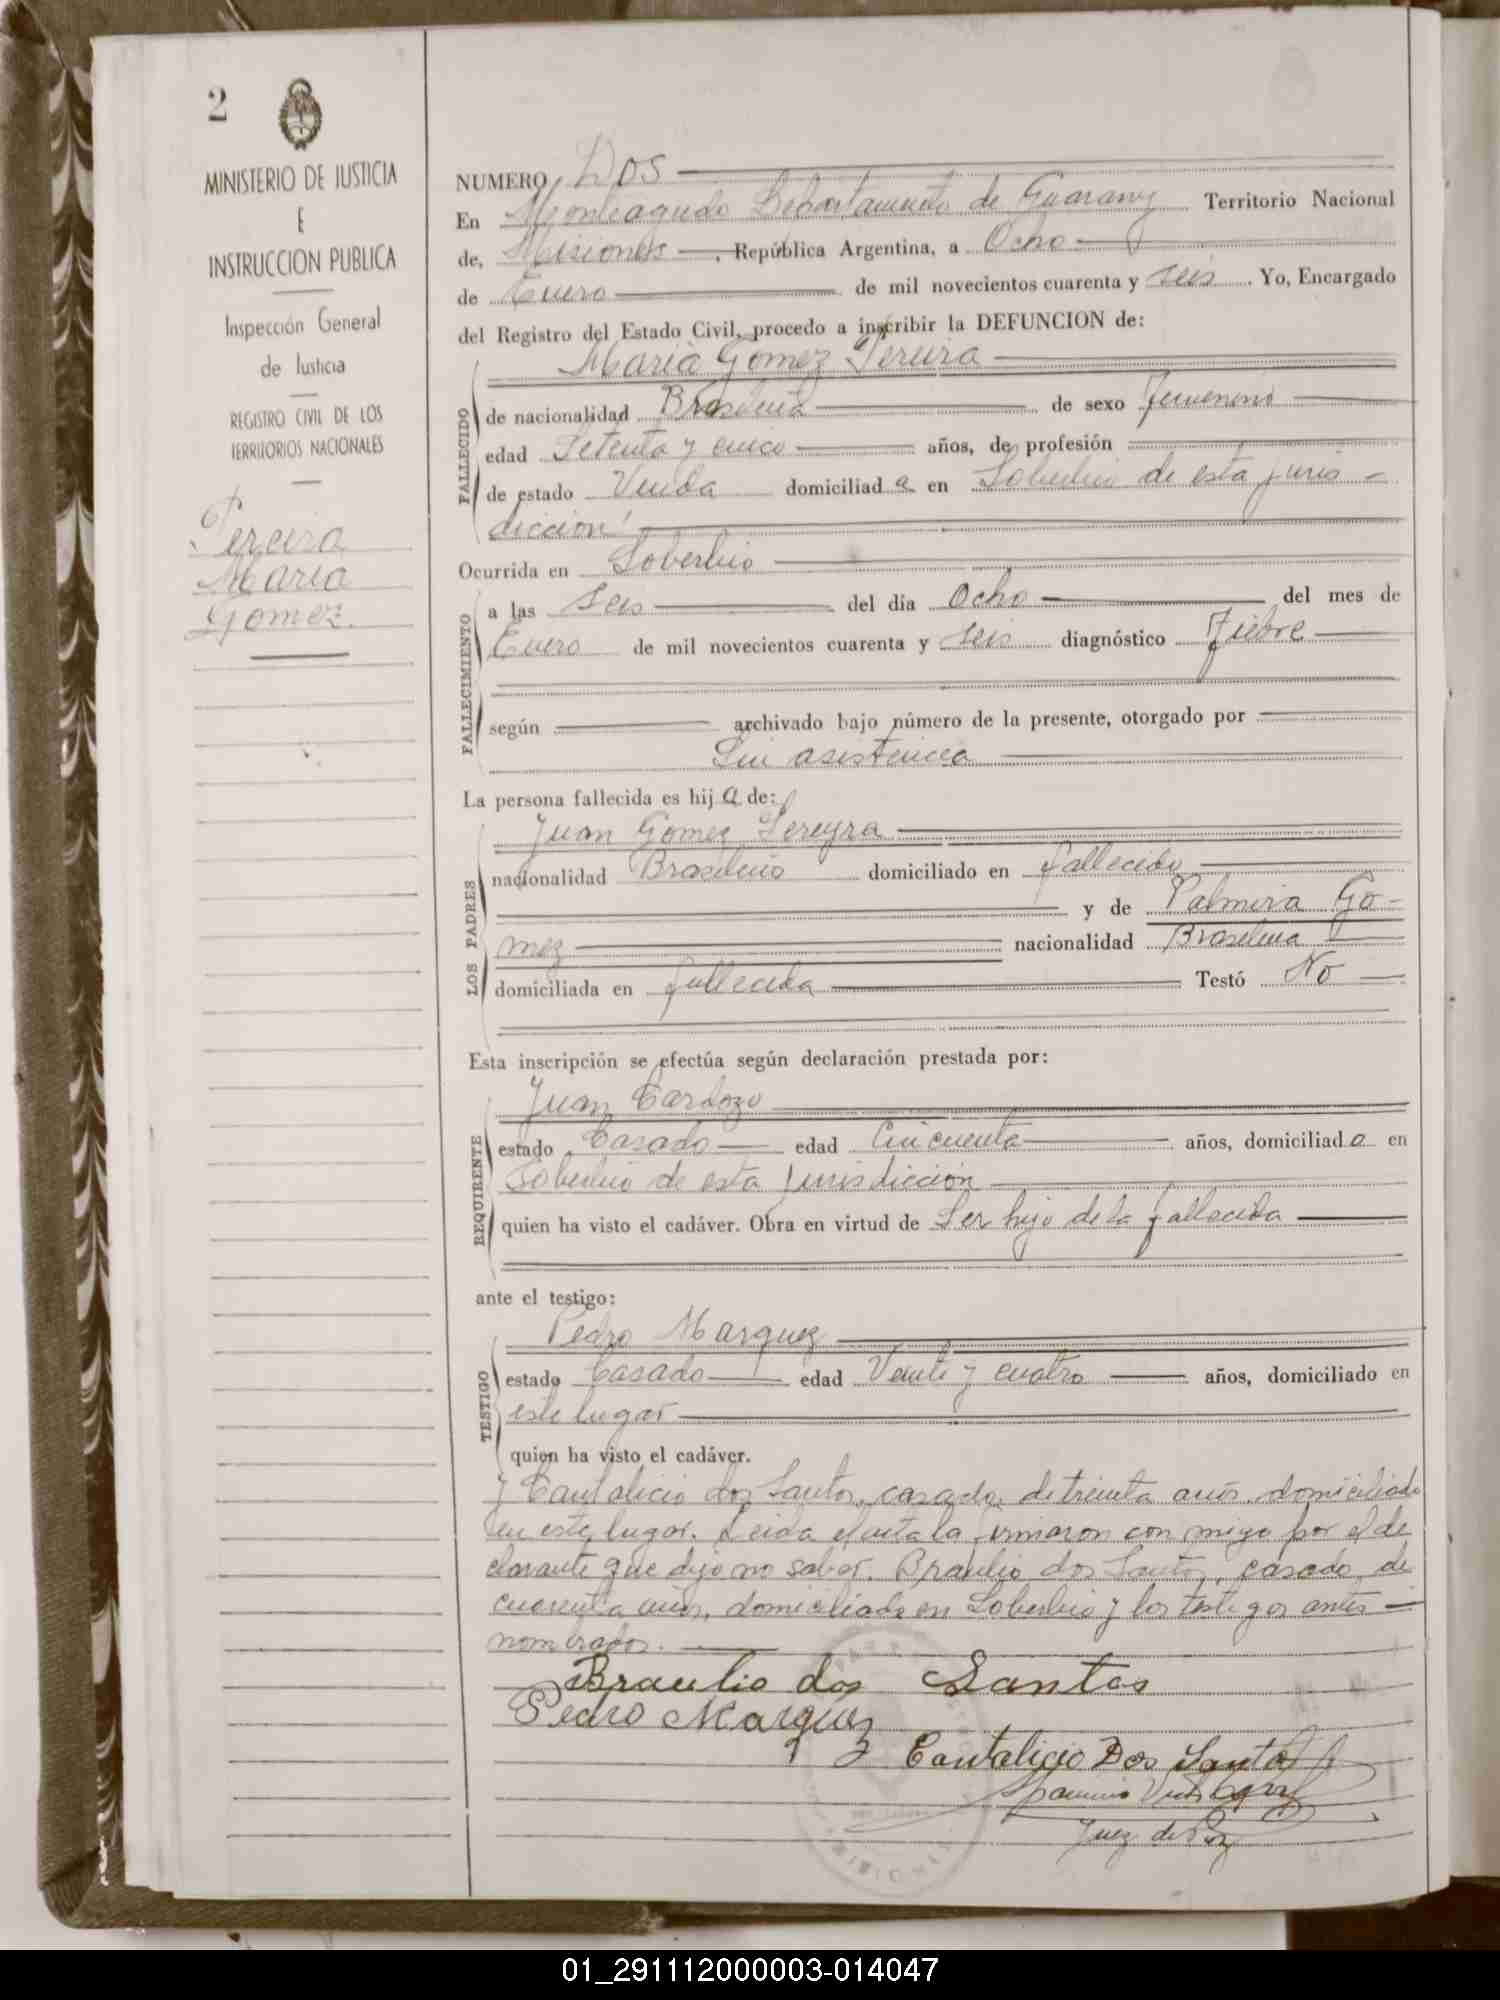 2
MINISTERIO DE JUSTICIA
E
INSTRUCCION PUBLICA
Inspección General
de Justicia
REGISTRO CIVIL DE LOS
TERRITORIOS NACIONALES
Pereira
Maria
Gomez.
NUMERO Dos
En Monteagudo Departamento de Guarany Territorio Nacional
de, Misiones, República Argentina, a Ocho
de Enero de mil novecientos cuarenta y seis. Yo, Encargado
del Registro del Estado Civil, procedo a inscribir la DEFUNCION de:
Maria Gomez Pereira
FALLECIDO
de nacionalidad Brasilena de sexo femenino
edad Setenta y cinco años, de profesión
de estado Viuda domiciliad a en Soberbio de esta juris-
diccion
Ocurrida en Soberbio
FALLECIMIENTO
a las seis del día Ocho del mes de
Enero de mil novecientos cuarenta y seis diagnóstico Fiebre
según archivado bajo número de la presente, otorgado por
Sin asistencia
La persona fallecida es hij a de:
LOS PADRES
Juan Gomez Pereyra
nacionalidad Brasileño domiciliado en fallecido
y de Palmira Go-
mez nacionalidad Brasilena
domiciliada en fallecida Testó No
Esta inscripción se efectúa según declaración prestada por:
REQUIRENTE
Juan Cardozo
estado Casado edad Cincuenta años, domiciliad o en
Soberbio de esta jurisdicción
quien ha visto el cadáver. Obra en virtud de Ser hijo de la fallecida
ante el testigo:
TESTIGO
Pedro Marquez
estado Casado edad Veinte y cuatro años, domiciliado en
este lugar
quien ha visto el cadáver.
y Cantalicio dos Santos, casado, de treinta años, domiciliado
en este lugar. Leida el acta la firmaron con migo por el de
clarante que dijo no saber. Braulio dos Santos, casado, de
cuarenta años, domiciliado en Soberbio y los testigos antes
nombrados.
Braulio dos Santos
Pedro Marquez
Cantalicio Dos Santos
Juez de Paz
01_291112000003-014047